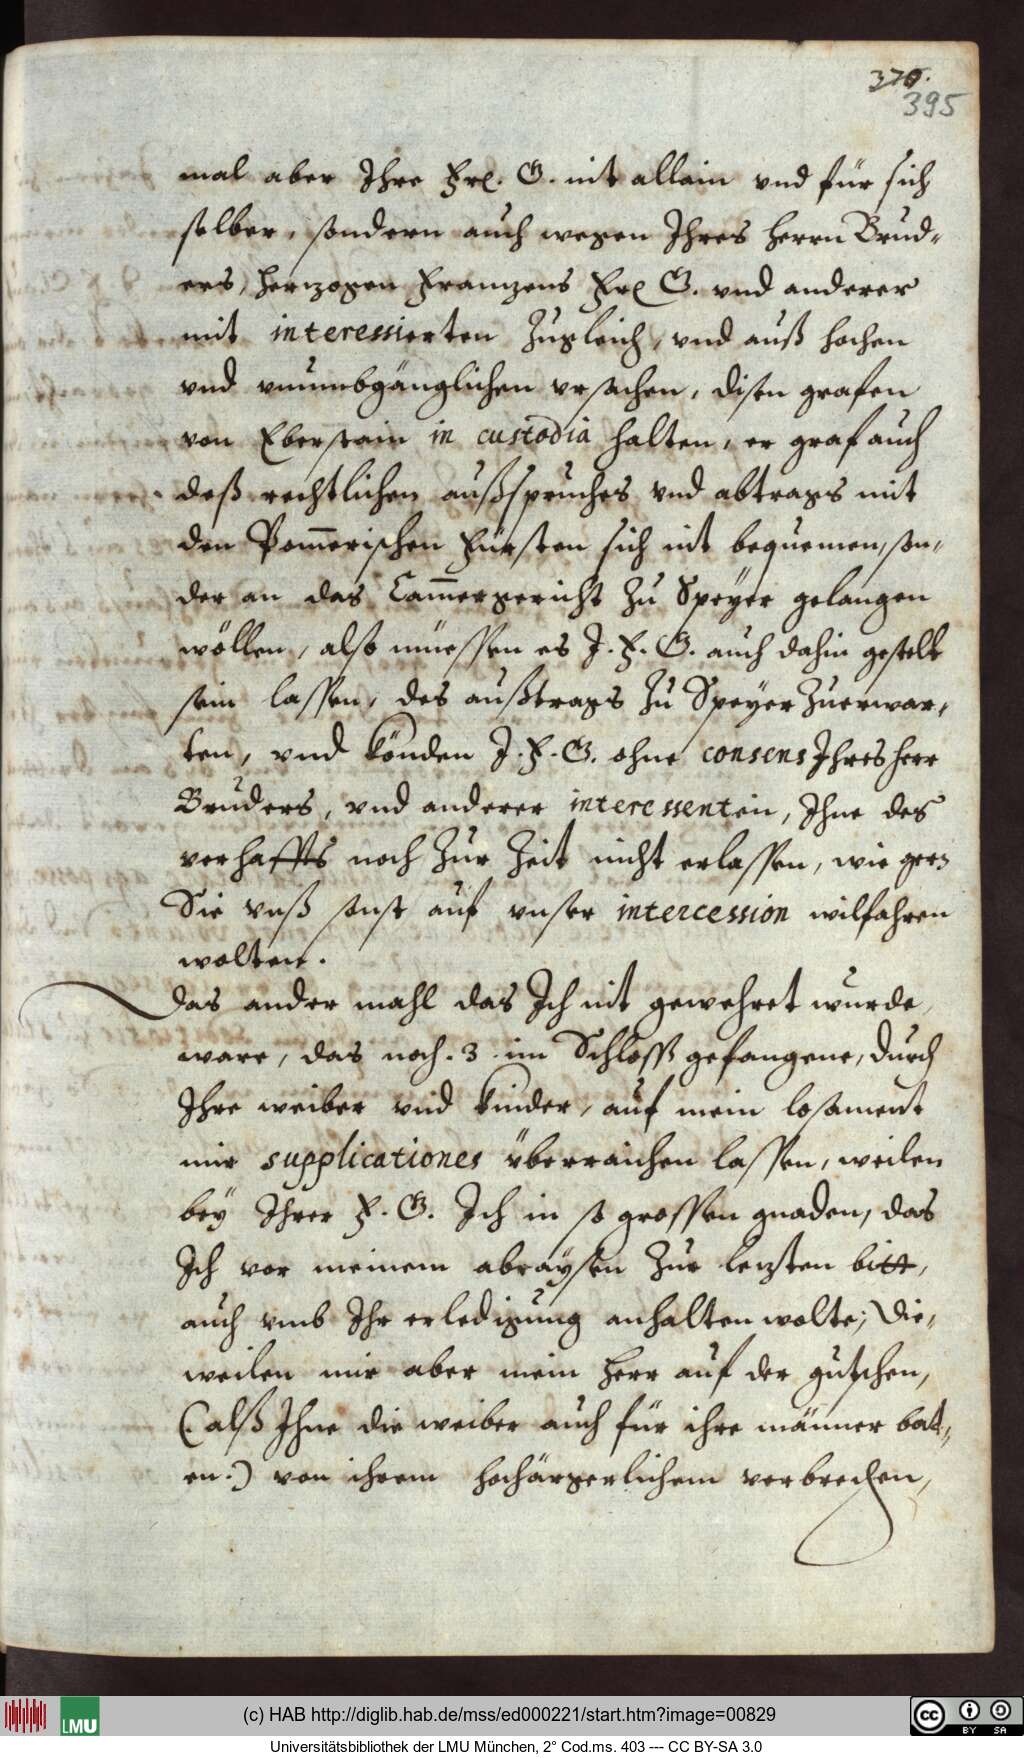 370.
395
mal aber Ihre Frl. G. nit allain vnd für sich
selber, sondern auch wegen Ihres herrn Brud-
ers, hertzogen Frantzens Frl G. vnd anderer
mit interessierten zugleich, vnd auß hochen
vnd vnumbgänglichen vrsachen, disen grafen
von Eberstain in custodia halten, er graf auch
deß rechtlichen außspruches vnd abtrags mit
den Pom̄erischen Fürsten sich nit bequemen, son-
der an das Cam̄ergericht zu Speÿer gelangen
wöllen, also müessen es J. F. G. auch dahin gestelt
sein lassen, des außtrags zu Speyer zuerwar-
ten, vnd könden J. F. G. ohne consens Ihres herr
Bruders, vnd anderer interessenten, Ihne des
verhaffts noch zur zeit nicht erlassen, wie gern
Sie vnß sonst auf vnser intercession wilfahren
wolten.
Das ander mahl das Ich nit gewehret wurde,
ware, das noch. 3. im Schloß gefangene, durch
Ihre weiber vnd kinder, auf mein losament
mir supplicationes überraichen lassen, weilen
beÿ Ihrer F. G. Ich in so grossen gnaden, das
Ich vor meinem abraÿsen zur letzten bitt,
auch vmb Ihr erledigung anhalten wolte; Die-
weilen mir aber mein herr auf der gutschen,
(: alß Ihne die weiber auch für ihre männer bat-
en:) von ihrem hochärgerlichem verbrechen,
(c) HAB http://diglib.hab.de/mss/ed000221/start.htm?image=00829
LMU
cc BY SA
Universitätsbibliothek der LMU München, 2° Cod.ms. 403 --- CC BY-SA 3.0